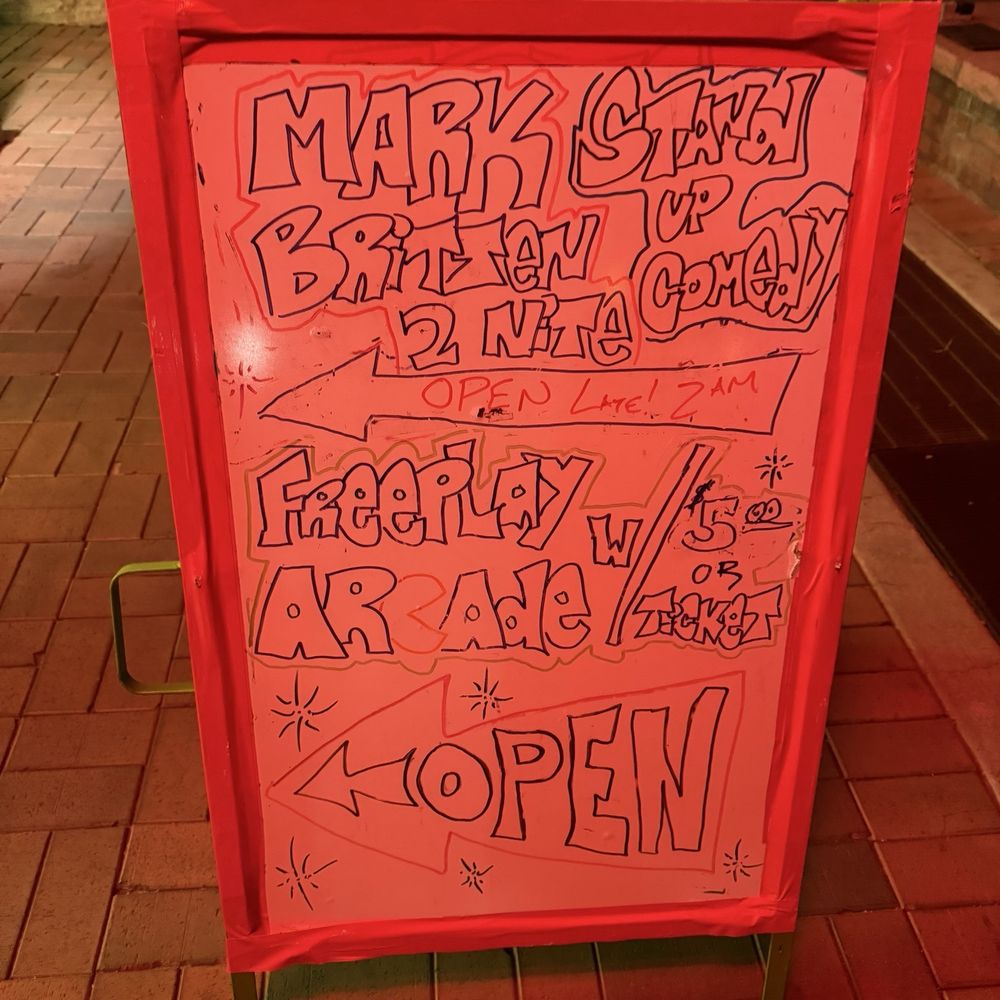 MARK
BRITTEN
2 NITE
STAND
UP
COMEDY
OPEN LATE! 2AM
FREEPLAY
ARCADE
W/
$5.00
OR
TICKET
OPEN